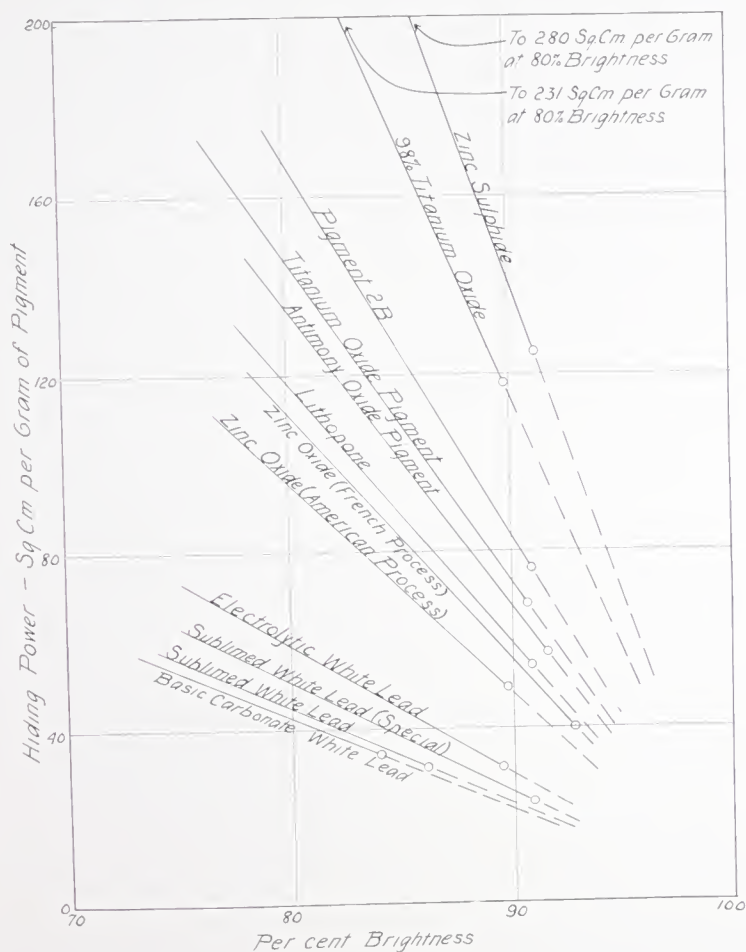 200
160
120
80
40
0
Hiding Power - Sq Cm per Gram of Pigment
To 280 Sq.Cm per Gram
at 80% Brightness
To 231 SqCm per Gram
at 80% Brightness
Zinc Sulphide
98% Titanium Oxide
Pigment 2B
Titanium Oxide Pigment
Antimony Oxide Pigment
Lithopone
Zinc Oxide (French Process)
Zinc Oxide (American Process)
Electrolytic White Lead
Sublimed White Lead (Special)
Sublimed White Lead
Basic Carbonate White Lead
70
80
90
100
Per cent Brightness